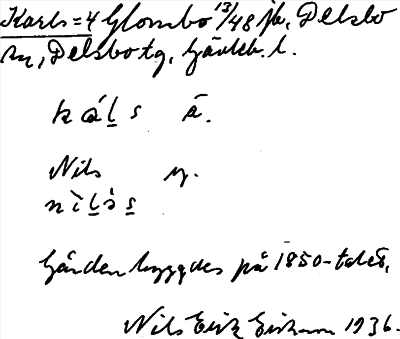 Karls = 4 Glombo 13/48 jb, Delsbo
sn, Delsbo tg, Gävleb. l.
kál̲s ā.
Nils y.
nìl̲s̀ s̲
Gården byggdes på 1850-talet,
Nils Erik Eriksson 1936.